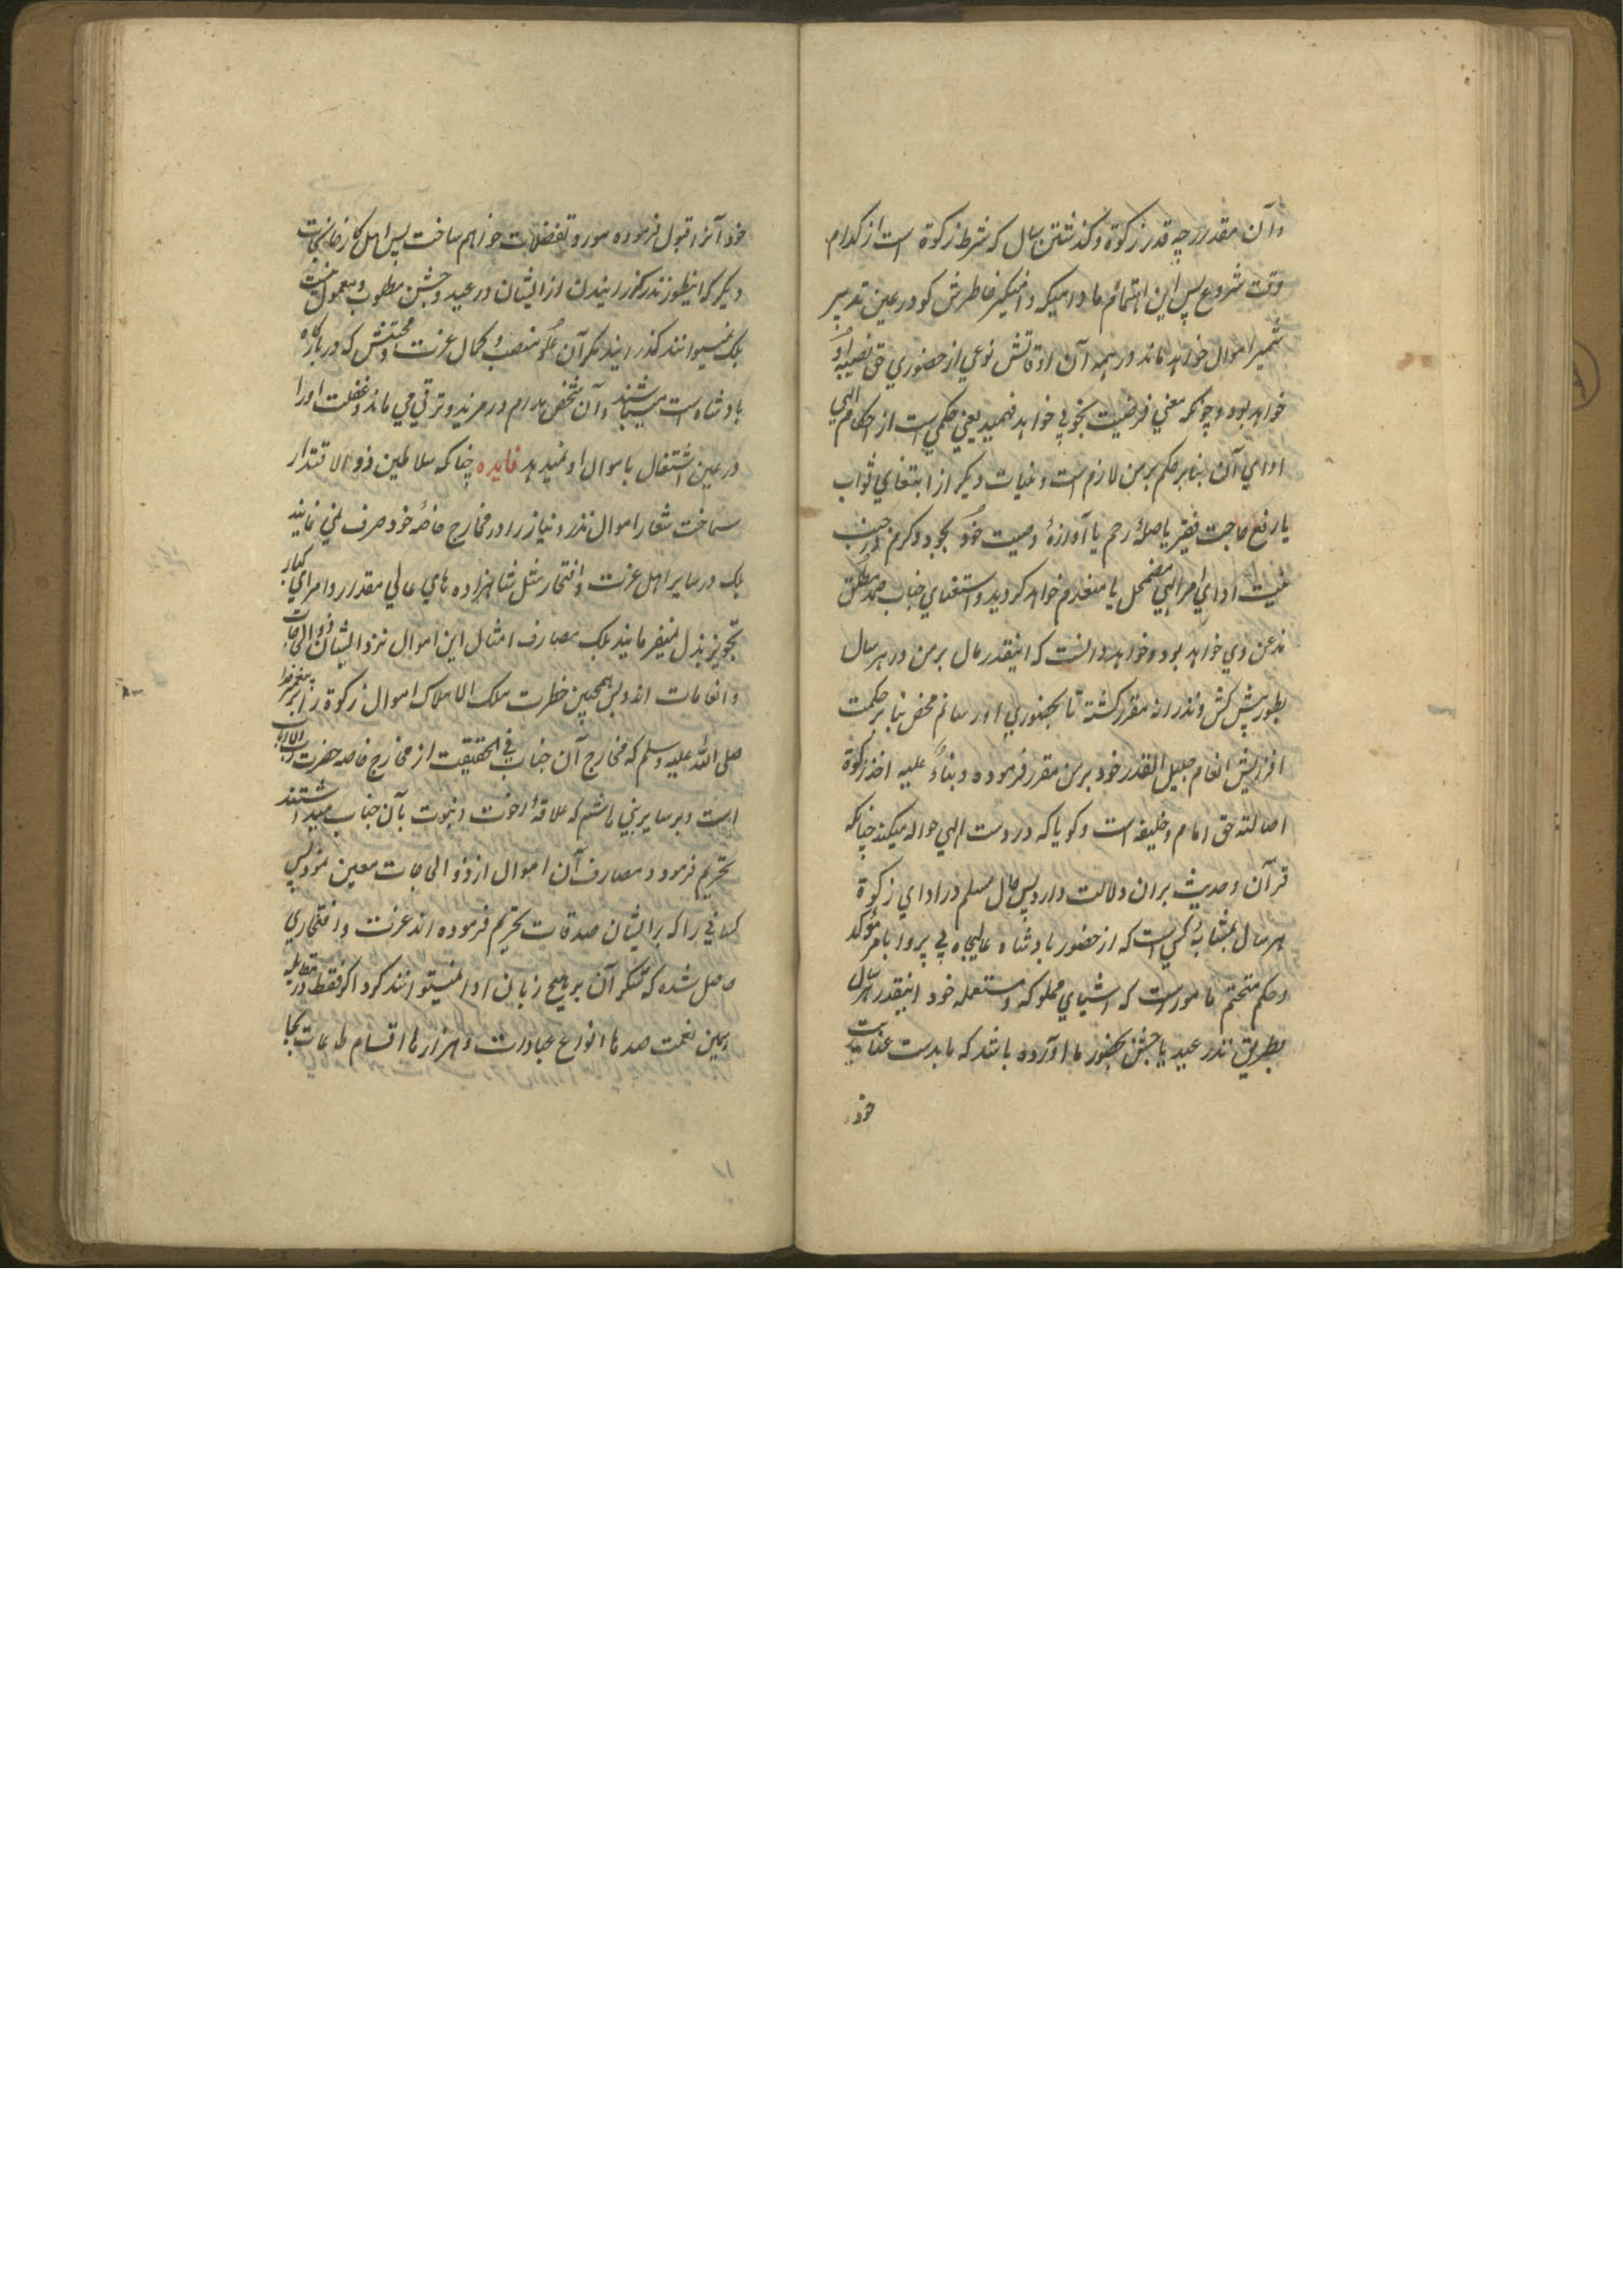 وآن مقدر چه قدر زکوة و کذشتن سال که شرط زکوة است از کدام
وقت شروع پس این اهتمام ما دامیکه دامنکیر خاطرش کو در عین تدبیر
تثمیر اموال خواهد ماند در همه آن اوقاتش نوعی از حضوری حق نصیبهٔ او
خواهد بود و چونکه معنی فرضیت بخوبی خواهد فهمید یعنی حکمی است از احکام الهی
ادای آن بنابر حکم بر من لازم است و نیات دیکر از ابتغای ثواب
یا رفع حاجت فقیر یا صلهٔ رحم یا آوازهٔ وصیت خود بجود و کرم در حین
نیت ادای امر الهی مضمحل یا منعدم خواهد کردید و استغنای جناب صمد مطلق
نه عن وی خواهد بود و خواهد دانست که اینقدر مال بر من در هر سال
بطور پیش کش و نذرانه مقرر کشته تا بحضوری اورسانم محض بنابر حکمت
افزونش انعام جلیل القدر خود بر من مقرر فرموده و بناءً علیه اخذ زکوة
اصالته حق امام و خلیفه است و کویا که در دست الهی حواله میکند چنانکه
قرآن و حدیث بران دلالت دارد پس حال مسلم در ادای زکوة
هر سال بمثابهٔ کسی است که از حضور بادشاه عالیجاه بی پروا بامر مؤکد
و حکم متحتم مامور است که اشیای مملوکه و مستعمله خود اینقدر هر سال
بطریق نذر عید یا جشن بحضور ما آورده باشد که ما بدست عنایت
خود
خود آنرا قبول فرموده مورد تفضلات خواهم ساخت پس اهل کارخانجات
دیکر که اینطور نذر کذرانیدن از ایشان در عید و جشن مطلوب و معمول نیست
بلکه نمیتوانند کذرانید مکر آن علو منصب و کمال عزت و محتشش که در بارکاه
بادشاه است میشناسند و آن شخص مدام در مزید و ترقی می ماند و غفلت او را
در عین اشتغال باموال او نمیدهد فایده چنانکه سلاطین ذو الاقتدار
سماحت شعار اموال نذر و نیاز را در مخارج خاصهٔ خود صرف نمی نمایند
بلکه در سایر اهل عزت و افتخار مثل شاهزاده های عالی مقدار و امرای کبار
تجویز بذل نمیفرمایند بلکه مصارف امثال این اموال نزد ایشان ذوالحاجات
و انعامات اند پس همچنین حضرت ملک الاملاک اموال زکوة را بر پیغمبر خدا
صلی الله علیه وسلم که مخارج آن جناب فی الحقیقت از مخارج خاصه حضرت رب الارباب
است و بر سایر بنی هاشم که علاقهٔ اخوت و بنوت بآن جناب میداشتند
تحریم فرمود و مصارف آن اموال از ذو الحاجات معین نمود پس
کسانی را که بر ایشان صدقات تحریم فرموده اند عزت و افتخاری
حاصل شده که شکر آن بر هیچ زبان ادا نمیتوانند کرد اکر فقط در مقابله
همین نعمت صدها انواع عبادات و هزارها اقسام طاعات بجا